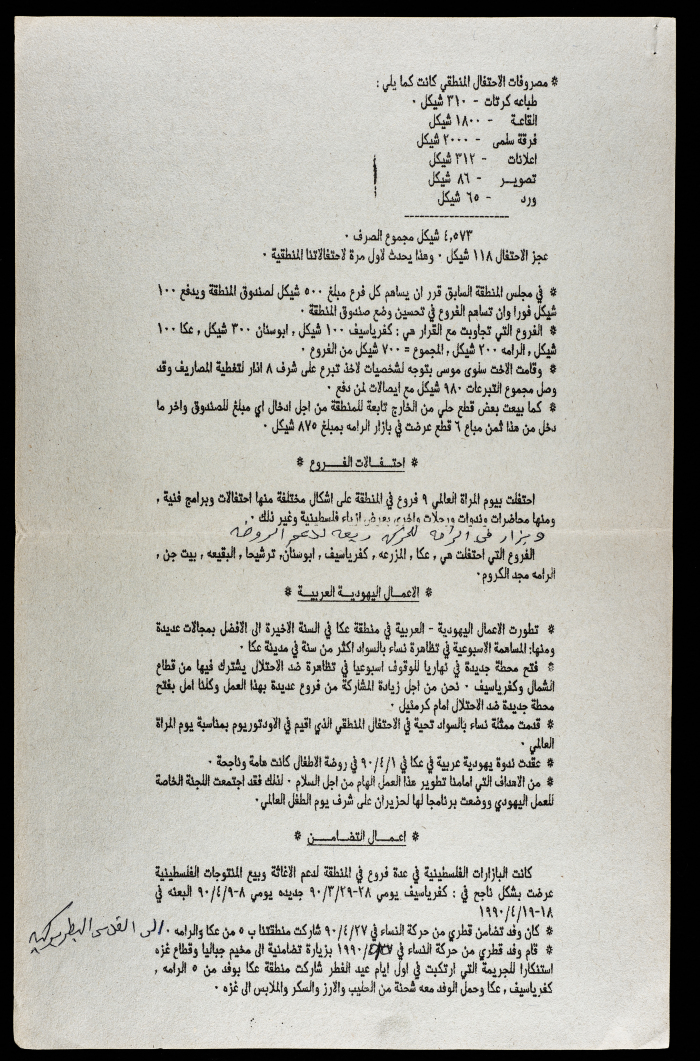 * مصروفات الاحتفال المنطقي كانت كما يلي :
طباعه كرتات - ٣١٠ شيكل ٠
القاعة - ١٨٠٠ شيكل
فرقة سلمى - ٢٠٠٠ شيكل
اعلانات - ٣١٢ شيكل
تصويـــر - ٨٦ شيكل
ورد - ٦٥ شيكل
--------------------
٤,٥٧٣ شيكل مجموع الصرف ٠
عجز الاحتفال ١١٨ شيكل ٠ وهذا يحدث لاول مرة لاحتفالاتنا المنطقية ٠
* في مجلس المنطقة السابق قرر ان يساهم كل فرع مبلغ ٥٠٠ شيكل لصندوق المنطقة ويدفع ١٠٠
شيكل فورا وان تساهم الفروع في تحسين وضع صندوق المنطقة ٠
* الفروع التي تجاوبت مع القرار هي : كفرياسيف ١٠٠ شيكل , ابوسنان ٣٠٠ شيكل , عكا ١٠٠
شيكل , الرامه ٢٠٠ شيكل , المجموع = ٧٠٠ شيكل من الفروع ٠
* وقامت الاخت سلوى موسى بتوجه لشخصيات لاخذ تبرع على شرف ٨ اذار لتغطية المصاريف وقد
وصل مجموع التبرعات ٩٨٠ شيكل مع ايصالات لمن دفع ٠
* كما بيعت بعض قطع حلي من الخارج تابعة للمنطقة من اجل ادخال اي مبلغ للصندوق واخر ما
دخل من هذا ثمن مباع ٦ قطع عرضت في بازار الرامه بمبلغ ٨٧٥ شيكل ٠
* احتفـــالات الفـــروع *
احتفلت بيوم المراة العالمي ٩ فروع في المنطقة على اشكال مختلفة منها احتفالات وبرامج فنية ,
ومنها محاضرات وندوات ورحلات واخرى بعرض ازياء فلسطينية وغير ذلك ٠
وبزار في الرامه لدعم الروضه
الفروع التي احتفلت هي , عكا , المزرعه , كفرياسيف , ابوسنان , ترشيحا , البقيعه , بيت جن ,
الرامه مجد الكروم ٠
* الاعمال اليهودية العربية *
* تطورت الاعمال اليهودية - العربية في منطقة عكا في السنة الاخيرة الى الافضل بمجالات عديدة
ومنها: المساهمة الاسبوعية في تظاهرة نساء بالسواد اكثر من سنة في مدينة عكا ٠
* فتح محطة جديدة في نهاريا للوقوف اسبوعيا في تظاهرة ضد الاحتلال يشترك فيها من قطاع
الشمال وكفرياسيف ٠ نحن من اجل زيادة المشاركة من فروع عديدة بهذا العمل وكلنا امل بفتح
محطة جديدة ضد الاحتلال امام كرمئيل ٠
* قدمت ممثلة نساء بالسواد تحية في الاحتفال المنطقي الذي اقيم في الاودتوريوم بمناسبة يوم المراة
العالمي ٠
* عقدت ندوة يهودية عربية في عكا في ٩٠/٤/١ في روضة الاطفال كانت هامة وناجحة ٠
* من الاهداف التي امامنا تطوير هذا العمل الهام من اجل السلام ٠ لذلك فقد اجتمعت اللجنة الخاصة
للعمل اليهودي ووضعت برنامجا لها لحزيران على شرف يوم الطفل العالمي٠
* اعمـــال التضـامـــن *
كانت البازارات الفلسطينية في عدة فروع في المنطقة لدعم الاغاثة وبيع المنتوجات الفلسطينية
عرضت بشكل ناجح في : كفرياسيف يومي ٢٨-٩٠/٣/٢٩ جديده يومي ٨-٩٠/٤/٩ البعنه في
١٨-١٩٩٠/٤/١٩
* كان وفد تضامن قطري من حركة النساء في ٩٠/٤/٢٧ شاركت منطقتنا ب ٥ من عكا والرامه ٠ الى القدس البطريركية
* قام وفد قطري من حركة النساء في ١٩٩٠ بزيارة تضامنية الى مخيم جباليا وقطاع غزه
استنكارا للجريمة التي ارتكبت في اول ايام عيد الفطر شاركت منطقة عكا بوفد من ٥ الرامه ,
كفرياسيف , عكا وحمل الوفد معه شحنة من الحليب والارز والسكر والملابس الى غزه ٠